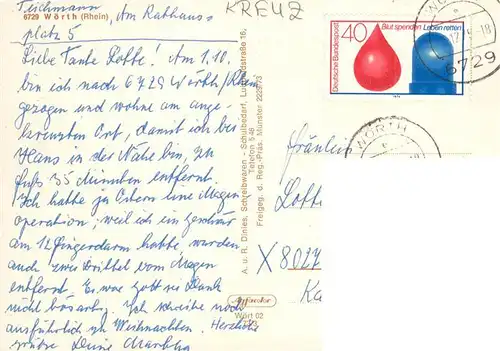 Teichmann
6729 Wörth (Rhein) Am Rathaus-
platz 5
Liebe Tante Lotte! Am 1.10.
bin ich nach 6729 Wörth/Rhein
gezogen und wohne am ange-
kreuzten Ort, damit ich bei
Hans in der Nähe bin, zu
Fuß 35 Minuten entfernt.
Ich hatte zu Ostern eine Magen-
operation, weil ich ein Geschwür
am 12 Fingerdarm hatte, wurden
auch zwei Drittel vom Magen
entfernt. Es war Gott sei Dank
nicht bösartig. Ich schreibe noch
ausführlich zu Weihnachten. Herzliche
Grüße Deine
KREUZ
A. u. R. Dinies, Schreibwaren - Schulbedarf, 16,
Telefon 5 48
Freigeg. d. Reg.-Präs. Münster 2229/73
Wört 02
Deutsche Bundespost
40 Blut spenden Leben retten
1974
WÖRTH
6729
WÖRTH
Fräulein
Lotte
X 8027